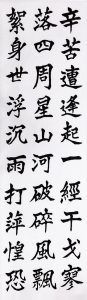 辛苦遭逢起一經干戈寥
落四周星山河破碎風飄
絮身世浮沉雨打萍惶恐